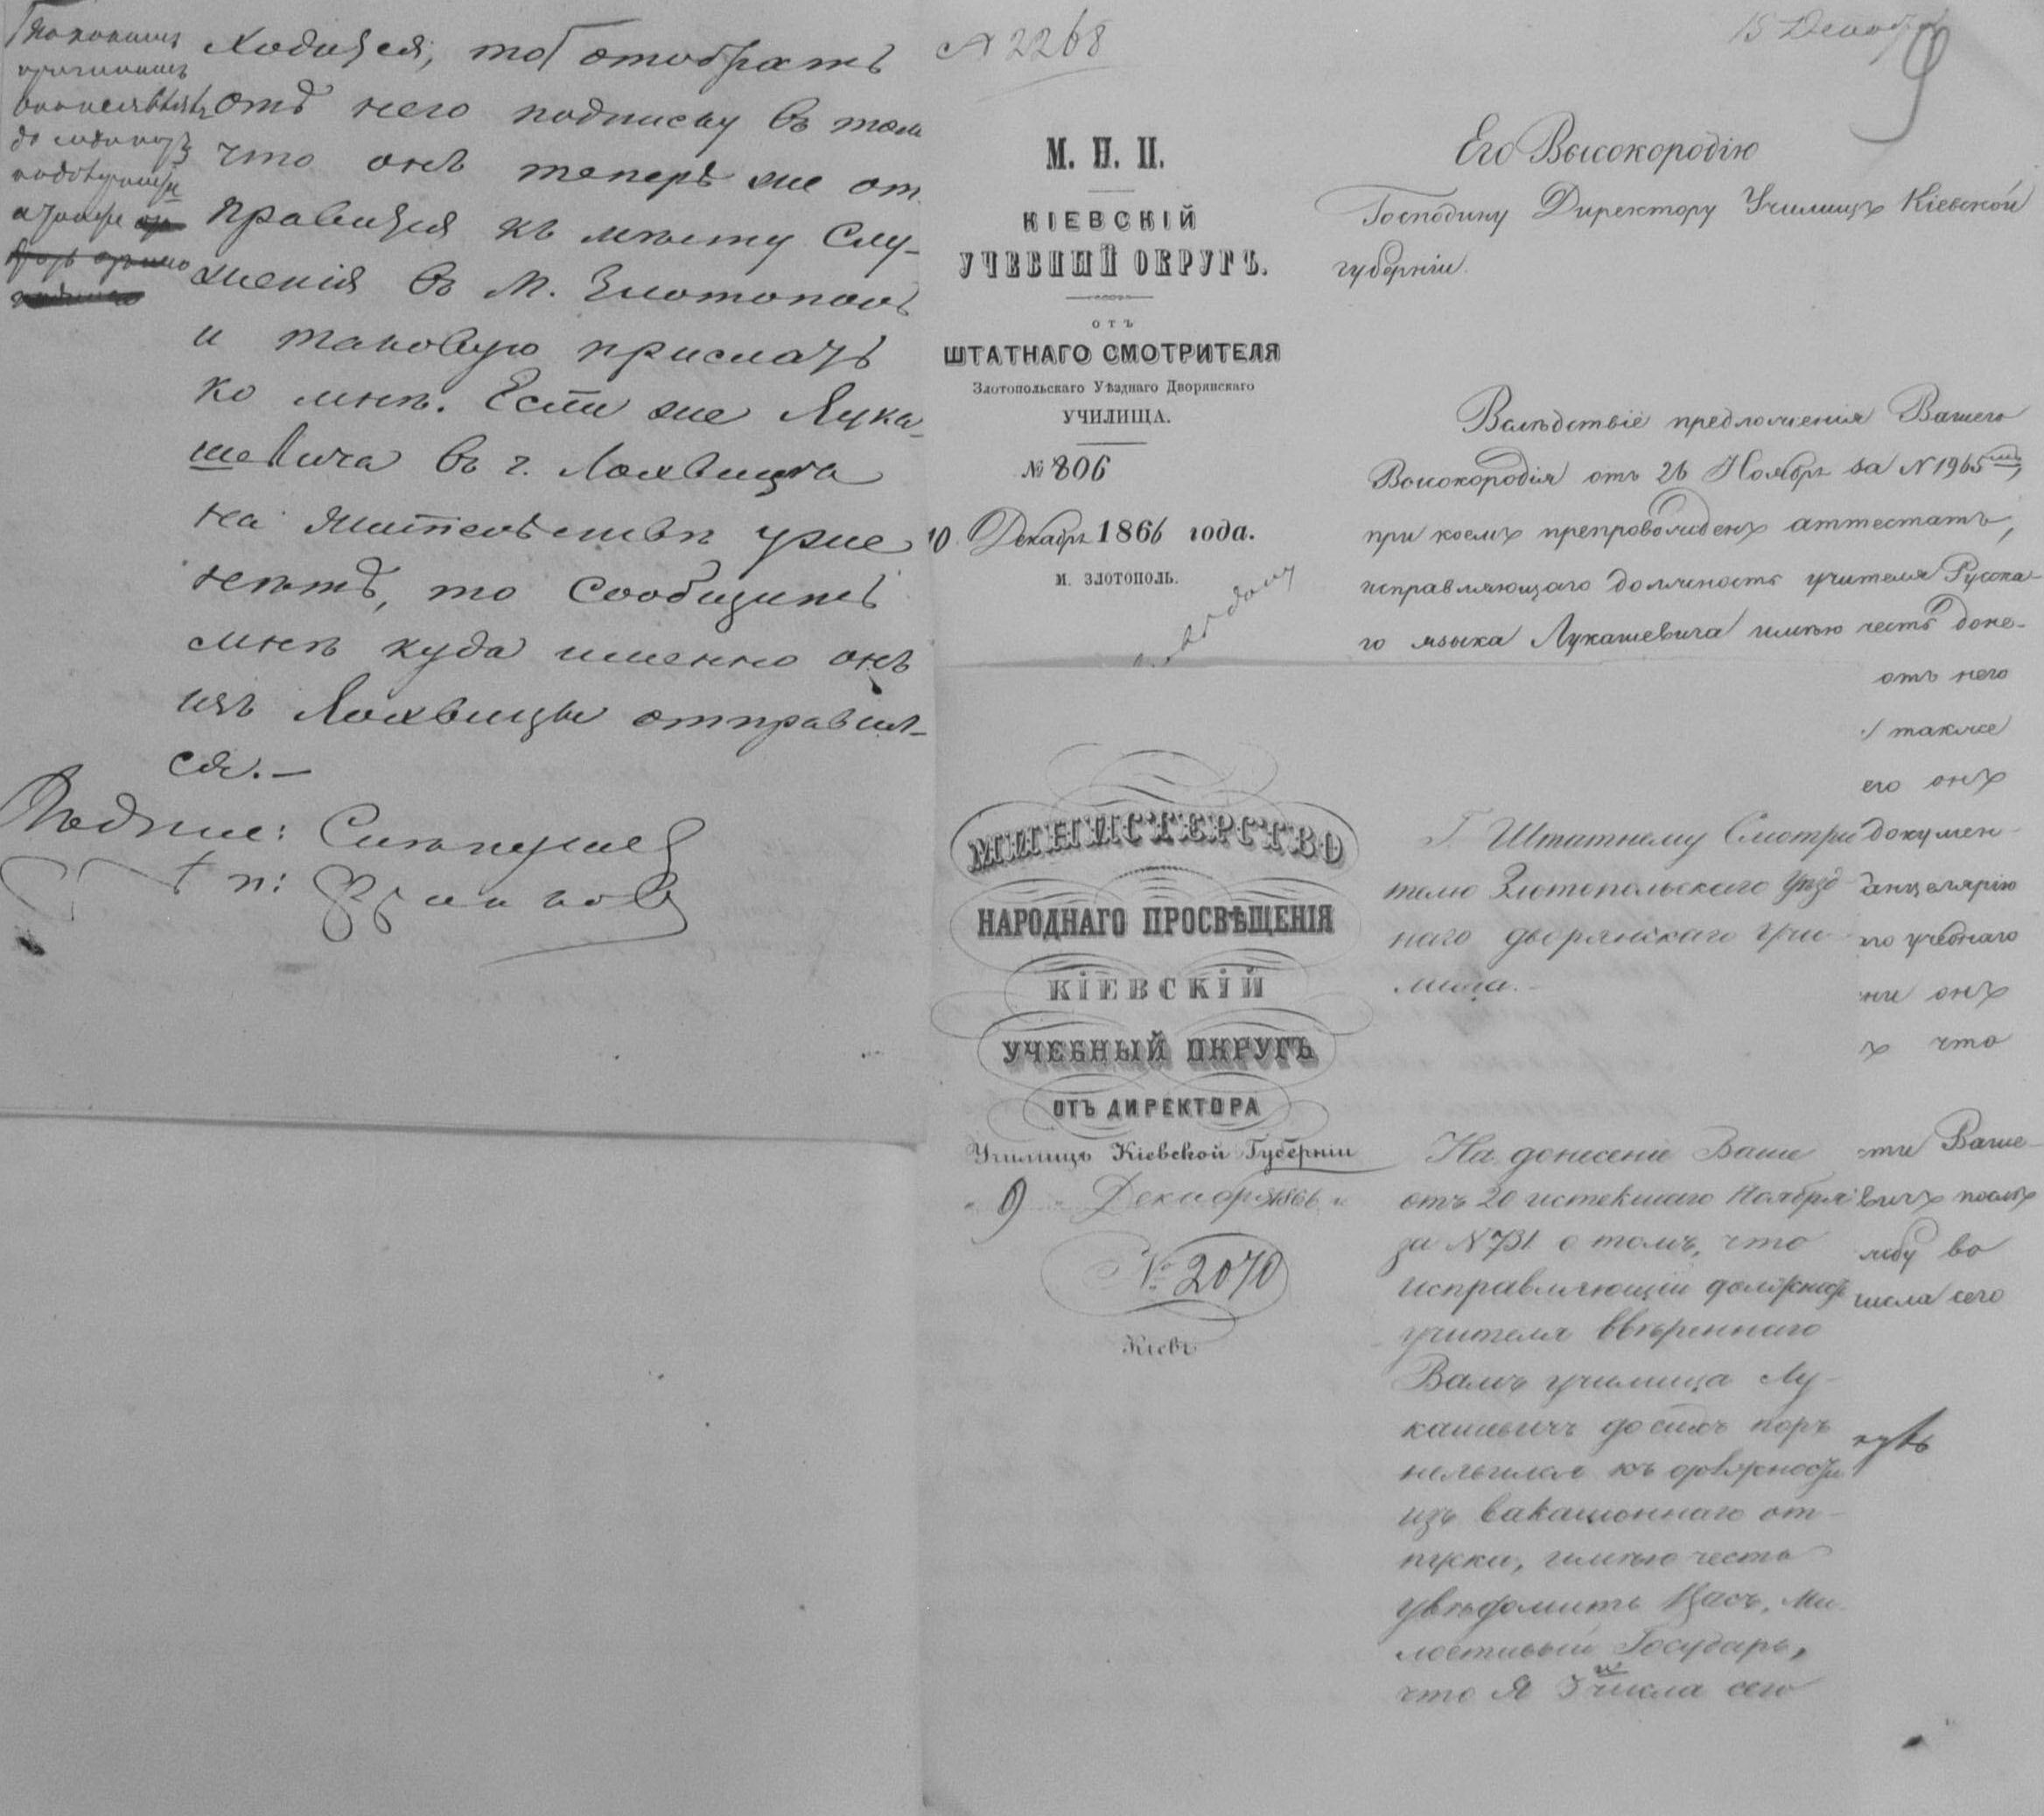 ходится, то отобрать
отъ него подписку въ томъ
что онъ теперь же от
правится къ мѣсту слу-
женія въ М. Златополь
и таковую прислать
ко мнѣ. Если же Лука-
шевича въ г. Лохвицѣ
на жительствѣ уже
нетъ, то сообщить
мнѣ куда именно онъ
изъ Лохвицы отправил-
ся.—
Подпис:
№ 2268
15 Декабря
9
М. Н. П.
КІЕВСКІЙ
УЧЕБНЫЙ ОКРУГЪ.
ОТЪ
ШТАТНАГО СМОТРИТЕЛЯ
Златопольскаго Уѣзднаго Дворянскаго
УЧИЛИЩА.
№ 806
10 Декабря 1866 года.
м. ЗЛОТОПОЛЬ.
Его Высокородію
Господину Директору Училищъ Кіевской
губерніи.
Вслѣдствіе предложенія Вашего
Высокородія отъ 26 Ноября за N 1965
при коемъ препровожденъ аттестатъ,
исправляющаго должность учителя Руска-
го языка Лукашевича имѣю честь доне-
отъ него
также
его онъ
докумен-
анцелярію
го учебнаго
ніи онъ
ъ что
сти Ваше-
вичъ послѣ
жбу во
числа сего
МИНИСТЕРСТВО
НАРОДНАГО ПРОСВѢЩЕНІЯ
КІЕВСКІЙ
УЧЕБНЫЙ ОКРУГЪ
ОТЪ ДИРЕКТОРА
Училищъ Кіевской Губерніи
9 Декабря 1866 г.
№ 2070
Кіевъ
Г. Штатному Смотри
телю Златопольскаго Уѣзд
наго дворянскаго Учи-
лища.-
На донесеніе Ваше
отъ 20 истекшаго Ноября
за N 731 о томъ, что
исправляющій должность
учителя ввѣреннаго
Вамъ училища Лу-
кашевичъ до сихъ поръ
неявился къ должности
изъ вакаціоннаго от-
пуска, имѣю честь
увѣдомить Васъ, Ми-
лостивый Государь,
что я 3 числа сего